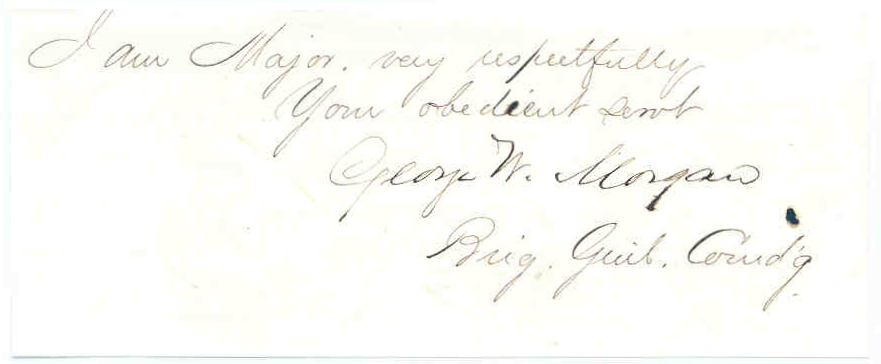 I am Major. very respectfully
Your obedient servt
George W. Morgan
Brig. Genl. Comd'g